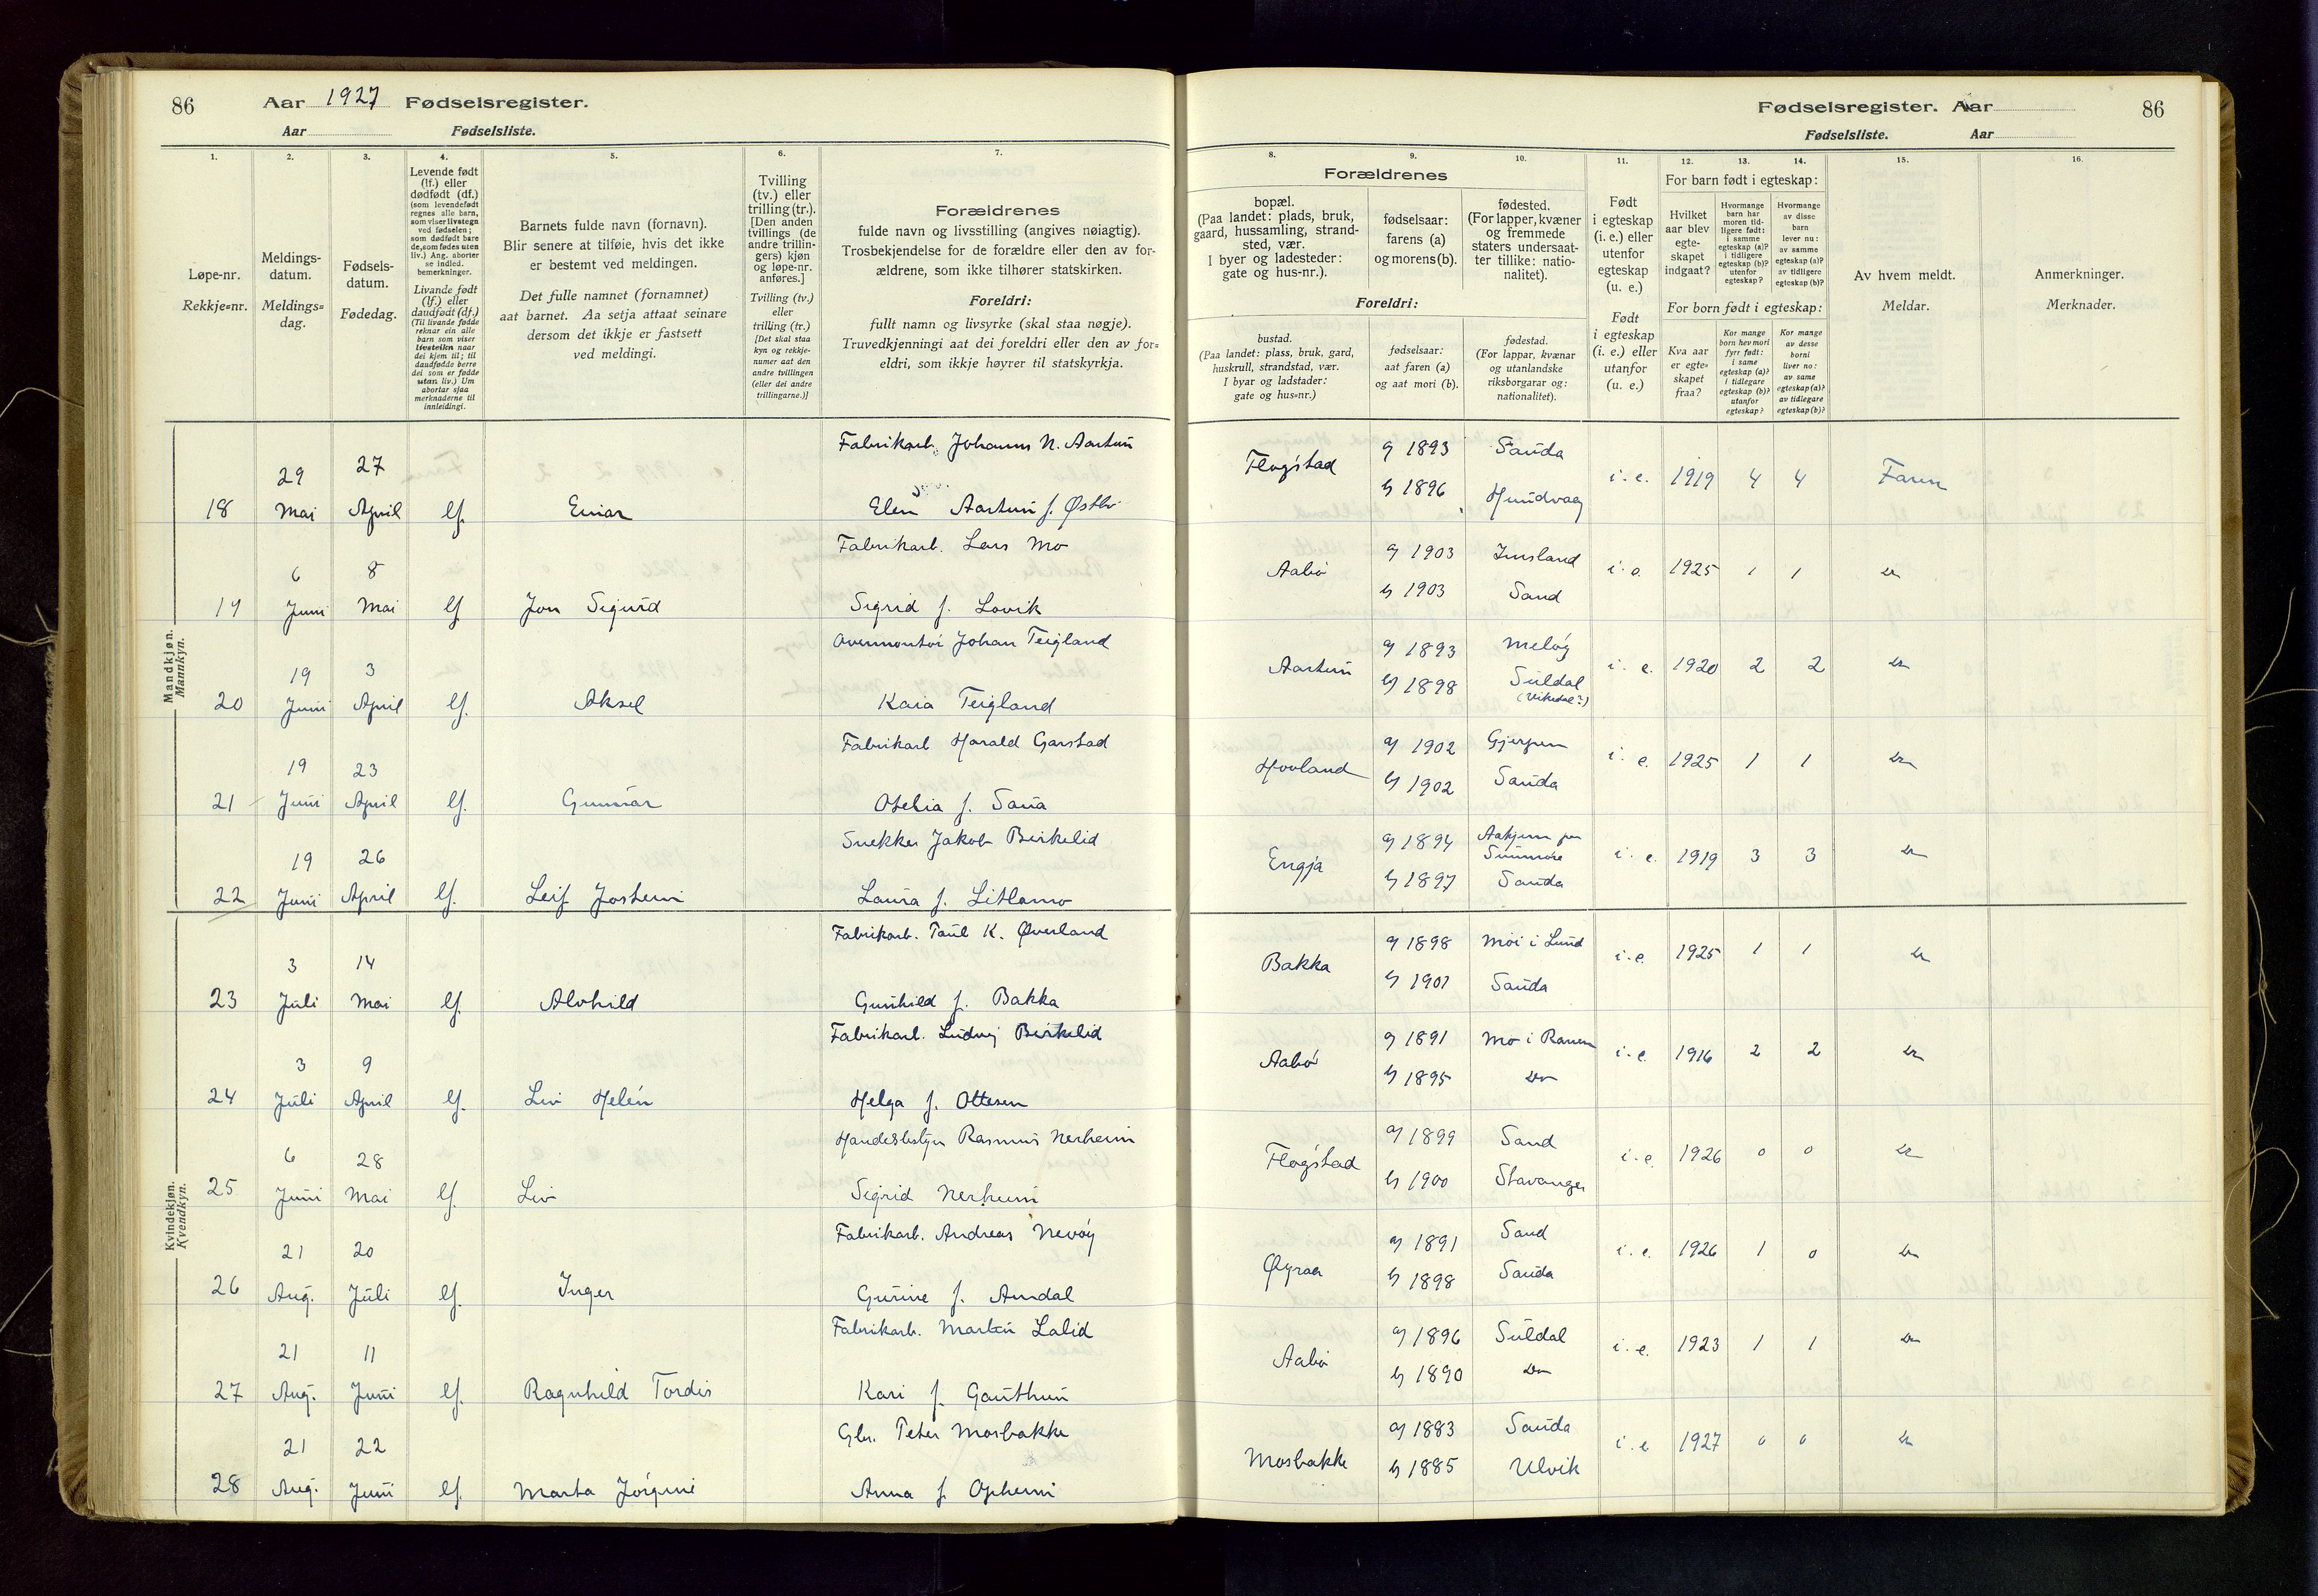 86
Aar 1927 Fødselsregister.
Aar Fødselsliste.
Fødselsregister. Aar
86
Fødselsliste. Aar
1.
2.
3.
4.
5.
6.
7.
8.
9.
10.
11.
12.
13.
14.
15.
16.
Løpe-nr.
Rekkje=nr.
Meldings-
datum.
Meldings=
dag.
Fødsels-
datum.
Fødedag.
Levende født
(lf.) eller
dødfødt (df.)
(som levendefødt
regnes alle barn,
som viser livstegn
ved fødselen;
som dødfødt bare
de, som fødes uten
liv.) Ang. aborter
se indled.
bemerkninger.
Livande født
(lf.) eller
daudfødt (df.)
(Til livande fødde
reknar ein alle
barn som viser
livsteikn naar
dei kjem til; til
daudfødde berre
dei som er fødde
utan liv.) Um
abortar sjaa
merknaderne til
innleidingi.
Barnets fulde navn (fornavn).
Blir senere at tilføie, hvis det ikke
er bestemt ved meldingen.
Det fulle namnet (fornamnet)
aat barnet. Aa setja attaat seinare
dersom det ikkje er fastsett
ved meldingi.
Tvilling
(tv.) eller
trilling (tr.).
[Den anden
tvillings (de
andre trillin-
gers) kjøn
og løpe-nr.
anføres.]
Tvilling (tv.)
eller
trilling (tr.)
[Det skal staa
kyn og rekkje-
numer aat den
andre tvillingen
(eller dei andre
trillingarne.)]
Forældrenes
fulde navn og livsstilling (angives nøiagtig).
Trosbekjendelse for de forældre eller den av for-
ældrene, som ikke tilhører statskirken.
Foreldri:
fullt namn og livsyrke (skal staa nøgje).
Truvedkjenningi aat dei foreldri eller den av for=
eldri, som ikkje høyrer til statskyrkja.
Forældrenes
bopæl.
(Paa landet: plads, bruk,
gaard, hussamling, strand-
sted, vær.
I byer og ladesteder:
gate og hus-nr.).
fødselsaar:
farens (a)
og morens (b).
fødested.
(For lapper, kvæner
og fremmede
staters undersaat-
ter tillike: natio-
nalitet).
Foreldri:
bustad.
(Paa landet: plass, bruk, gard,
huskrull, strandstad, vær.
I byar og ladstader:
gate og hus=nr.)
fødselsaar:
aat faren (a)
og aat mori (b).
fødestad.
(For lappar, kvænar
og utanlandske
riksborgarar og:
nationalitet).
Født
i egteskap
(i. e.) eller
utenfor
egteskap
(u. e.)
Født
i egteskap
(i. e.) eller
utanfor
(u. e.)
For barn født i egteskap:
Hvilket
aar blev
egte-
skapet
indgaat?
Hvormange
barn har
moren tid-
ligere født:
i samme
egteskap (a)?
i tidligere
egteskap (b)?
utenfor
egteskap?
Hvormange
av disse
barn
lever nu:
av samme
egteskap (a)?
av tidligere
egteskap (b)?
For born født i egteskap:
Kva aar
er egte-
skapet
fraa?
Kor mange
born hev mori
fyrr født:
i same
egteskap (a)?
i tidlegare
egteskap (b)?
utanfor
egteskap?
Kor mange
av desse
borni
liver no:
av same
egteskap (a)?
av tidlegare
egteskap (b)?
Av hvem meldt.
Meldar.
Anmerkninger.
Merknader.
Mandkjøn.
Mannkyn.
18 29 Mai 27 April lf. Einar Fabrikarb. Johannes N. Aartun
Elen Aartun f. Østbø
Flogstad a 1893 Sauda b 1896 Hundvaag i. e. 1919 4 4 Faren
19 6 Juni 8 Mai lf. Jon Sigurd Fabrikarb. Lars Mo
Sigrid f. Lovik
Aabø a 1903 Imsland b 1903 Sand i. e. 1925 1 1 Do
20 19 Juni 3 April lf. Aksel Overmontør Johan Teigland
Kaia Teigland
Aartun a 1893 Meløy b 1898 Suldal (Vikedal?) i. e. 1920 2 2 Do
21 19 Juni 23 April lf. Gunnar Fabrikarb Harald Garstad
Otelia f. Saua
Hovland a 1902 Gjerpen b 1902 Sauda i. e. 1925 1 1 Do
22 19 Juni 26 April lf. Leif Jostein Snekker Jakob Birkelid
Laura f. Litlamo
Engja a 1894 paa Sunnmøre b 1897 Sauda i. e. 1919 3 3 Do
Kvindekjøn.
Kvendkyn.
23 3 Juli 14 Mai lf. Alvhild Fabrikarb. Paul K. Øverland
Gunhild f. Bakka
Bakka a 1898 Moi i Lund b 1901 Sauda i. e. 1925 1 1 Do
24 3 Juli 9 April lf. Liv Helén Fabrikarb. Ludvig Birkelid
Helga f. Ottesen
Aabø a 1891 Mo i Ranen b 1895 Do i. e. 1916 2 2 Do
25 6 Juni 28 Mai lf. Liv Handelsbetjn Rasmus Nerheim
Sigrid Nerheim
Flogstad a 1899 Sand b 1900 Stavanger i. e. 1926 0 0 Do
26 21 Aug. 20 Juli lf. Inger Fabrikarb. Andreas Nevøy
Gurine f. Amdal
Øyraa a 1891 Sand b 1898 Sauda i. e. 1926 1 0 Do
27 21 Aug. 11 Juni lf. Ragnhild Tordis Fabrikarb. Martin Lalid
Kari f. Gauthun
Aabø a 1896 Suldal b 1890 Do i. e. 1923 1 1 Do
28 21 Aug. 22 Juni lf. Marta Jørgine Gbr. Peter Mosbakke
Anna f. Opheim
Mosbakke a 1883 Sauda b 1885 Ulvik i. e. 1927 0 0 Do